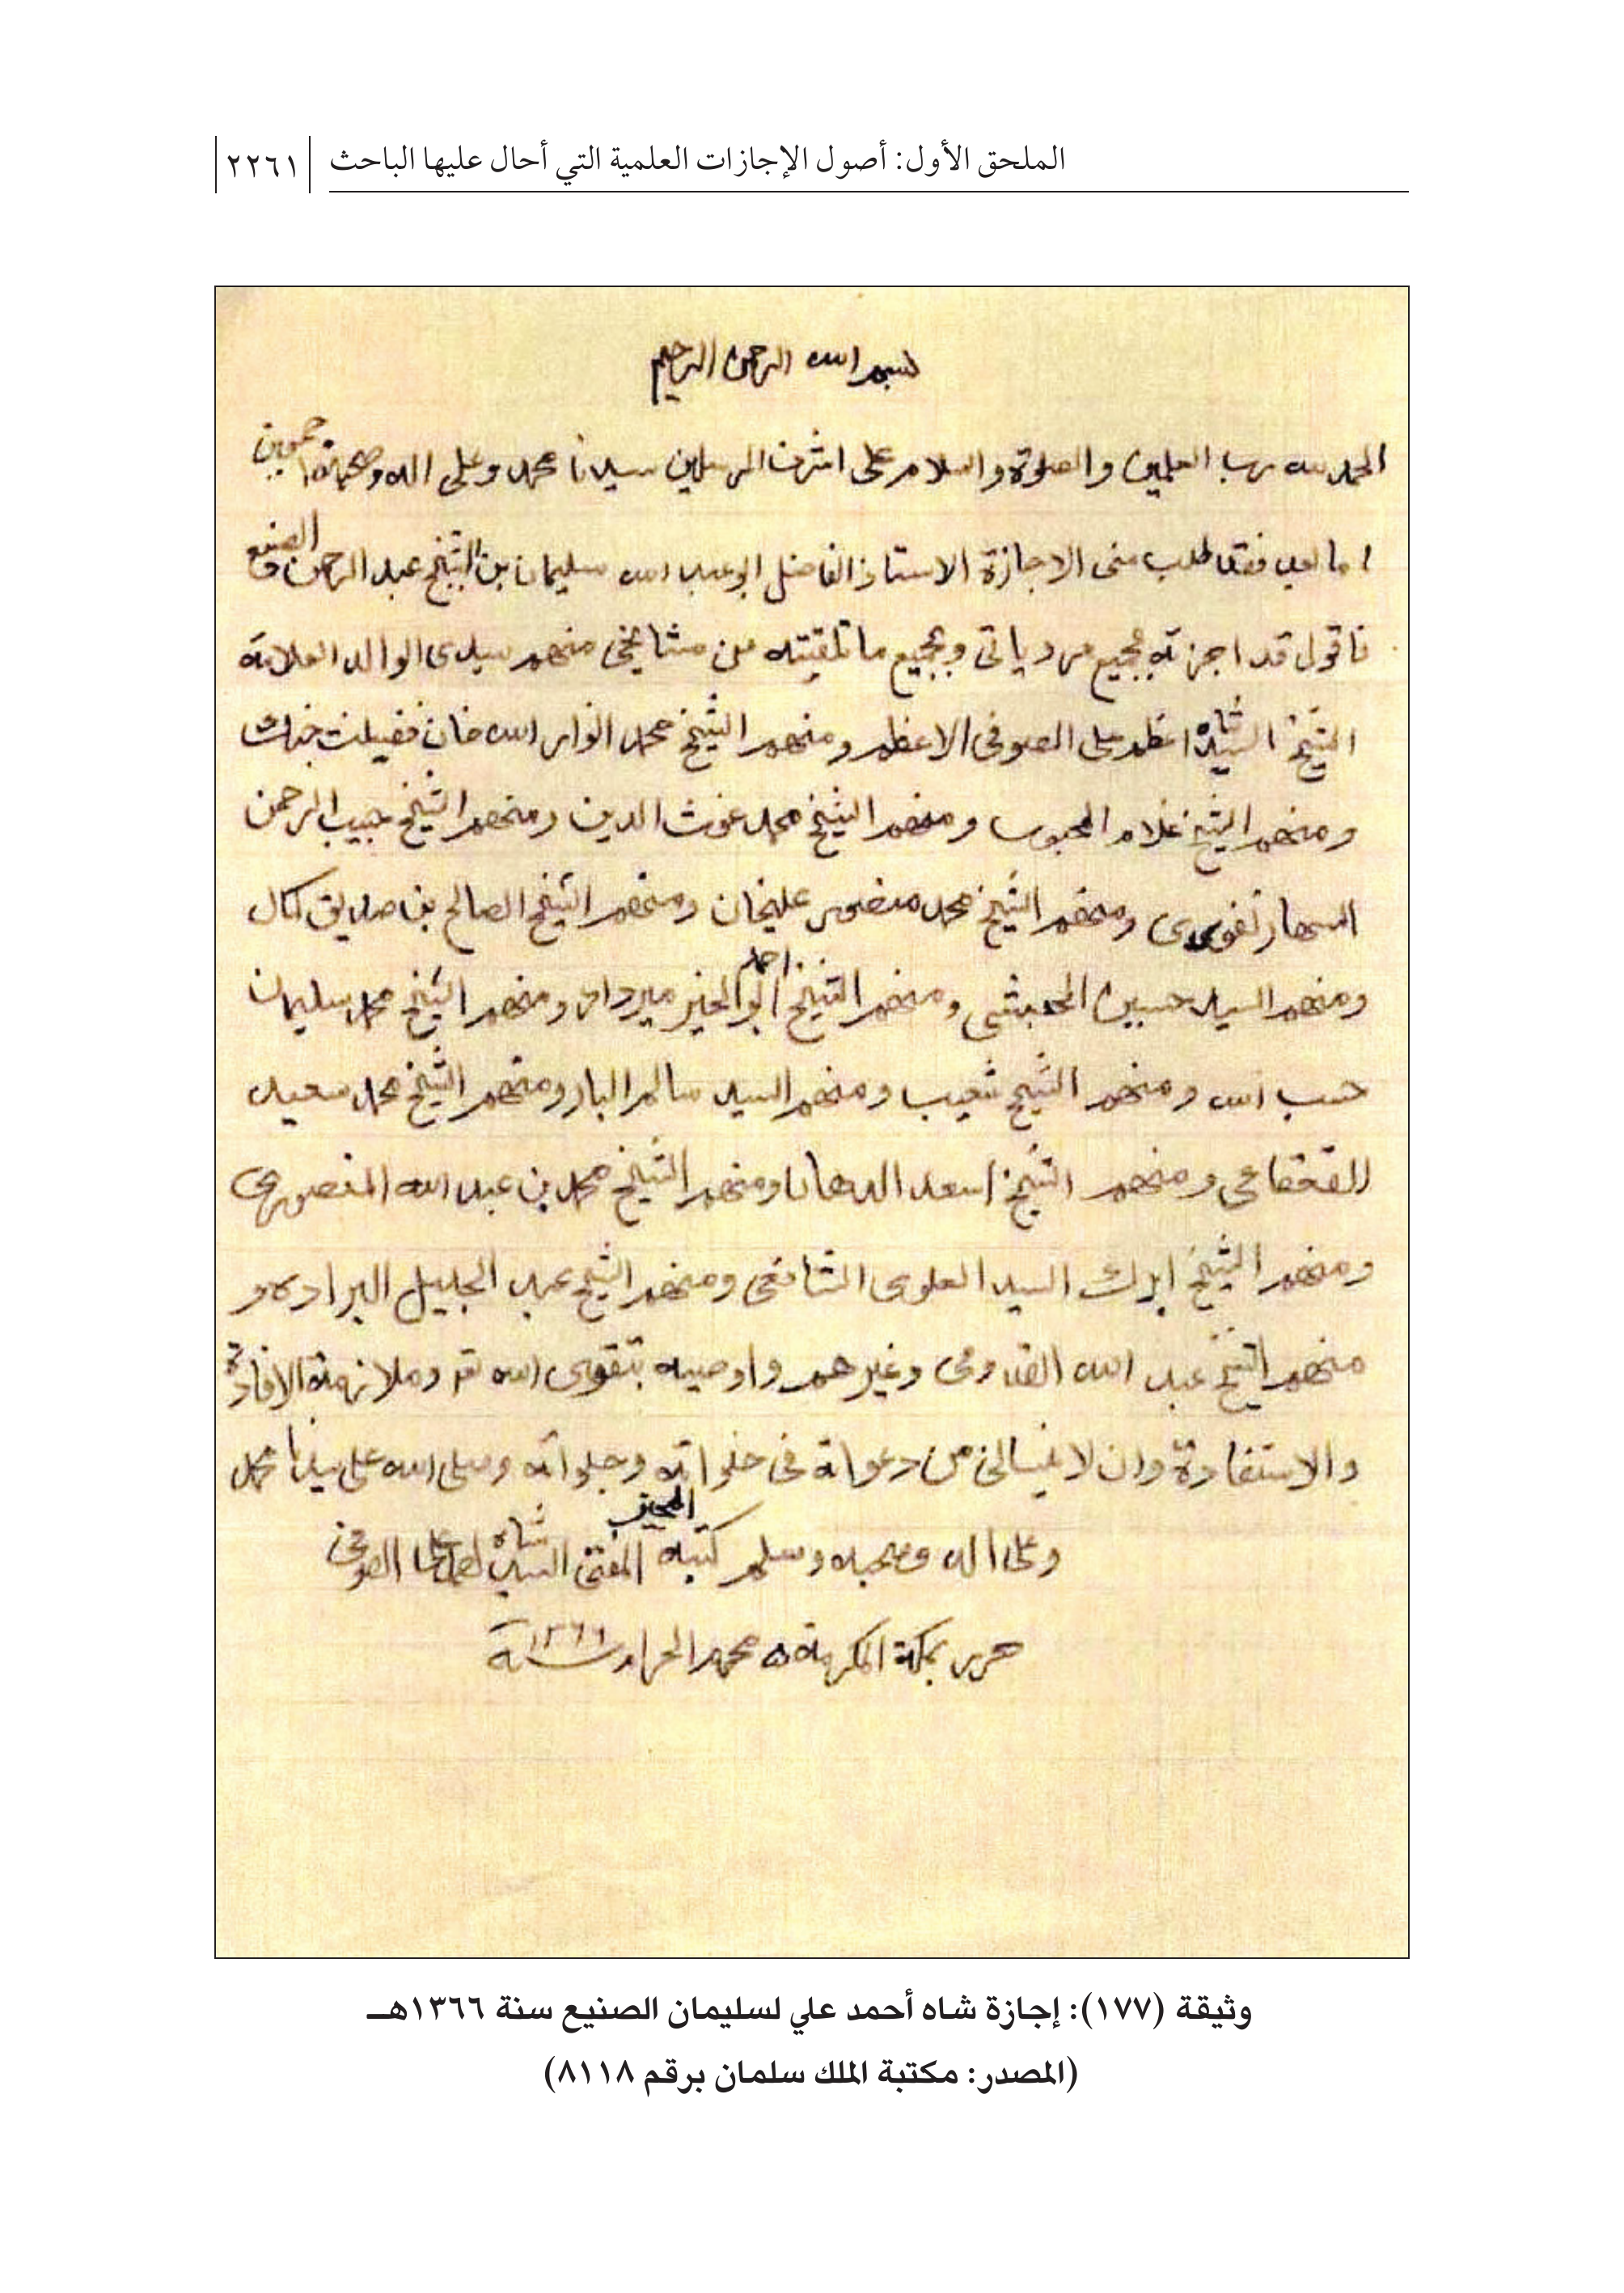 الملحق الأول: أصول الإجازات العلمية التي أحال عليها الباحث ٢٢٦١
بسم الله الرحمن الرحيم
الحمد لله رب العلمين والصلوة والسلام على اشرف المرسلين سيدنا محمد وعلى اله وصحبه اجمعين
اما بعد فقد طلب منى الاجازة الاستاذ الفاضل ابو عبد الله سليمان بن الشيخ عبد الرحمن الصنيع
فاقول قد اجزته بجميع مروياتى وبجميع ما تلقيته من مشائخى منهم سيدى الوالد العلامة
الشيخ السيد شاه اعظم على الصوفى الاعظم ومنهم الشيخ محمد انوار الله خان فضيلت جنك
ومنهم الشيخ غلام المحبوب ومنهم الشيخ محمد غوث الدين ومنهم الشيخ حبيب الرحمن
السهارنفورى ومنهم الشيخ محمد منصور عليخان ومنهم الشيخ الصالح بن صديق كمال
ومنهم السيد حسين الحبشى ومنهم الشيخ احمد ابو الخير ميرداد ومنهم الشيخ محمد سليمان
حسب الله ومنهم الشيخ شعيب ومنهم السيد سالم البار ومنهم الشيخ محمد سعيد
القعقاعى ومنهم الشيخ اسعد الدهان ومنهم الشيخ محمد بن عبد الله المنصورى
ومنهم الشيخ السيد العلوى الشافعى ومنهم الشيخ عبد الجليل البراده و
منهم الشيخ عبد الله القدومى وغيرهم واوصيه بتقوى الله وملازمة الافادة
والاستفادة وان لا ينسانى من دعواته فى خلواته وجلواته وصلى الله على سيدنا محمد
وعلى اله وصحبه وسلم كتبه المجيز المفتى السيد شاه احمد على الصوفى
حرر بمكة المكرمة ٥ محرم الحرام سنة ١٣٦٦
وثيقة (١٧٧): إجازة شاه أحمد علي لسليمان الصنيع سنة ١٣٦٦هـ
(المصدر: مكتبة الملك سلمان برقم ٨١١٨)